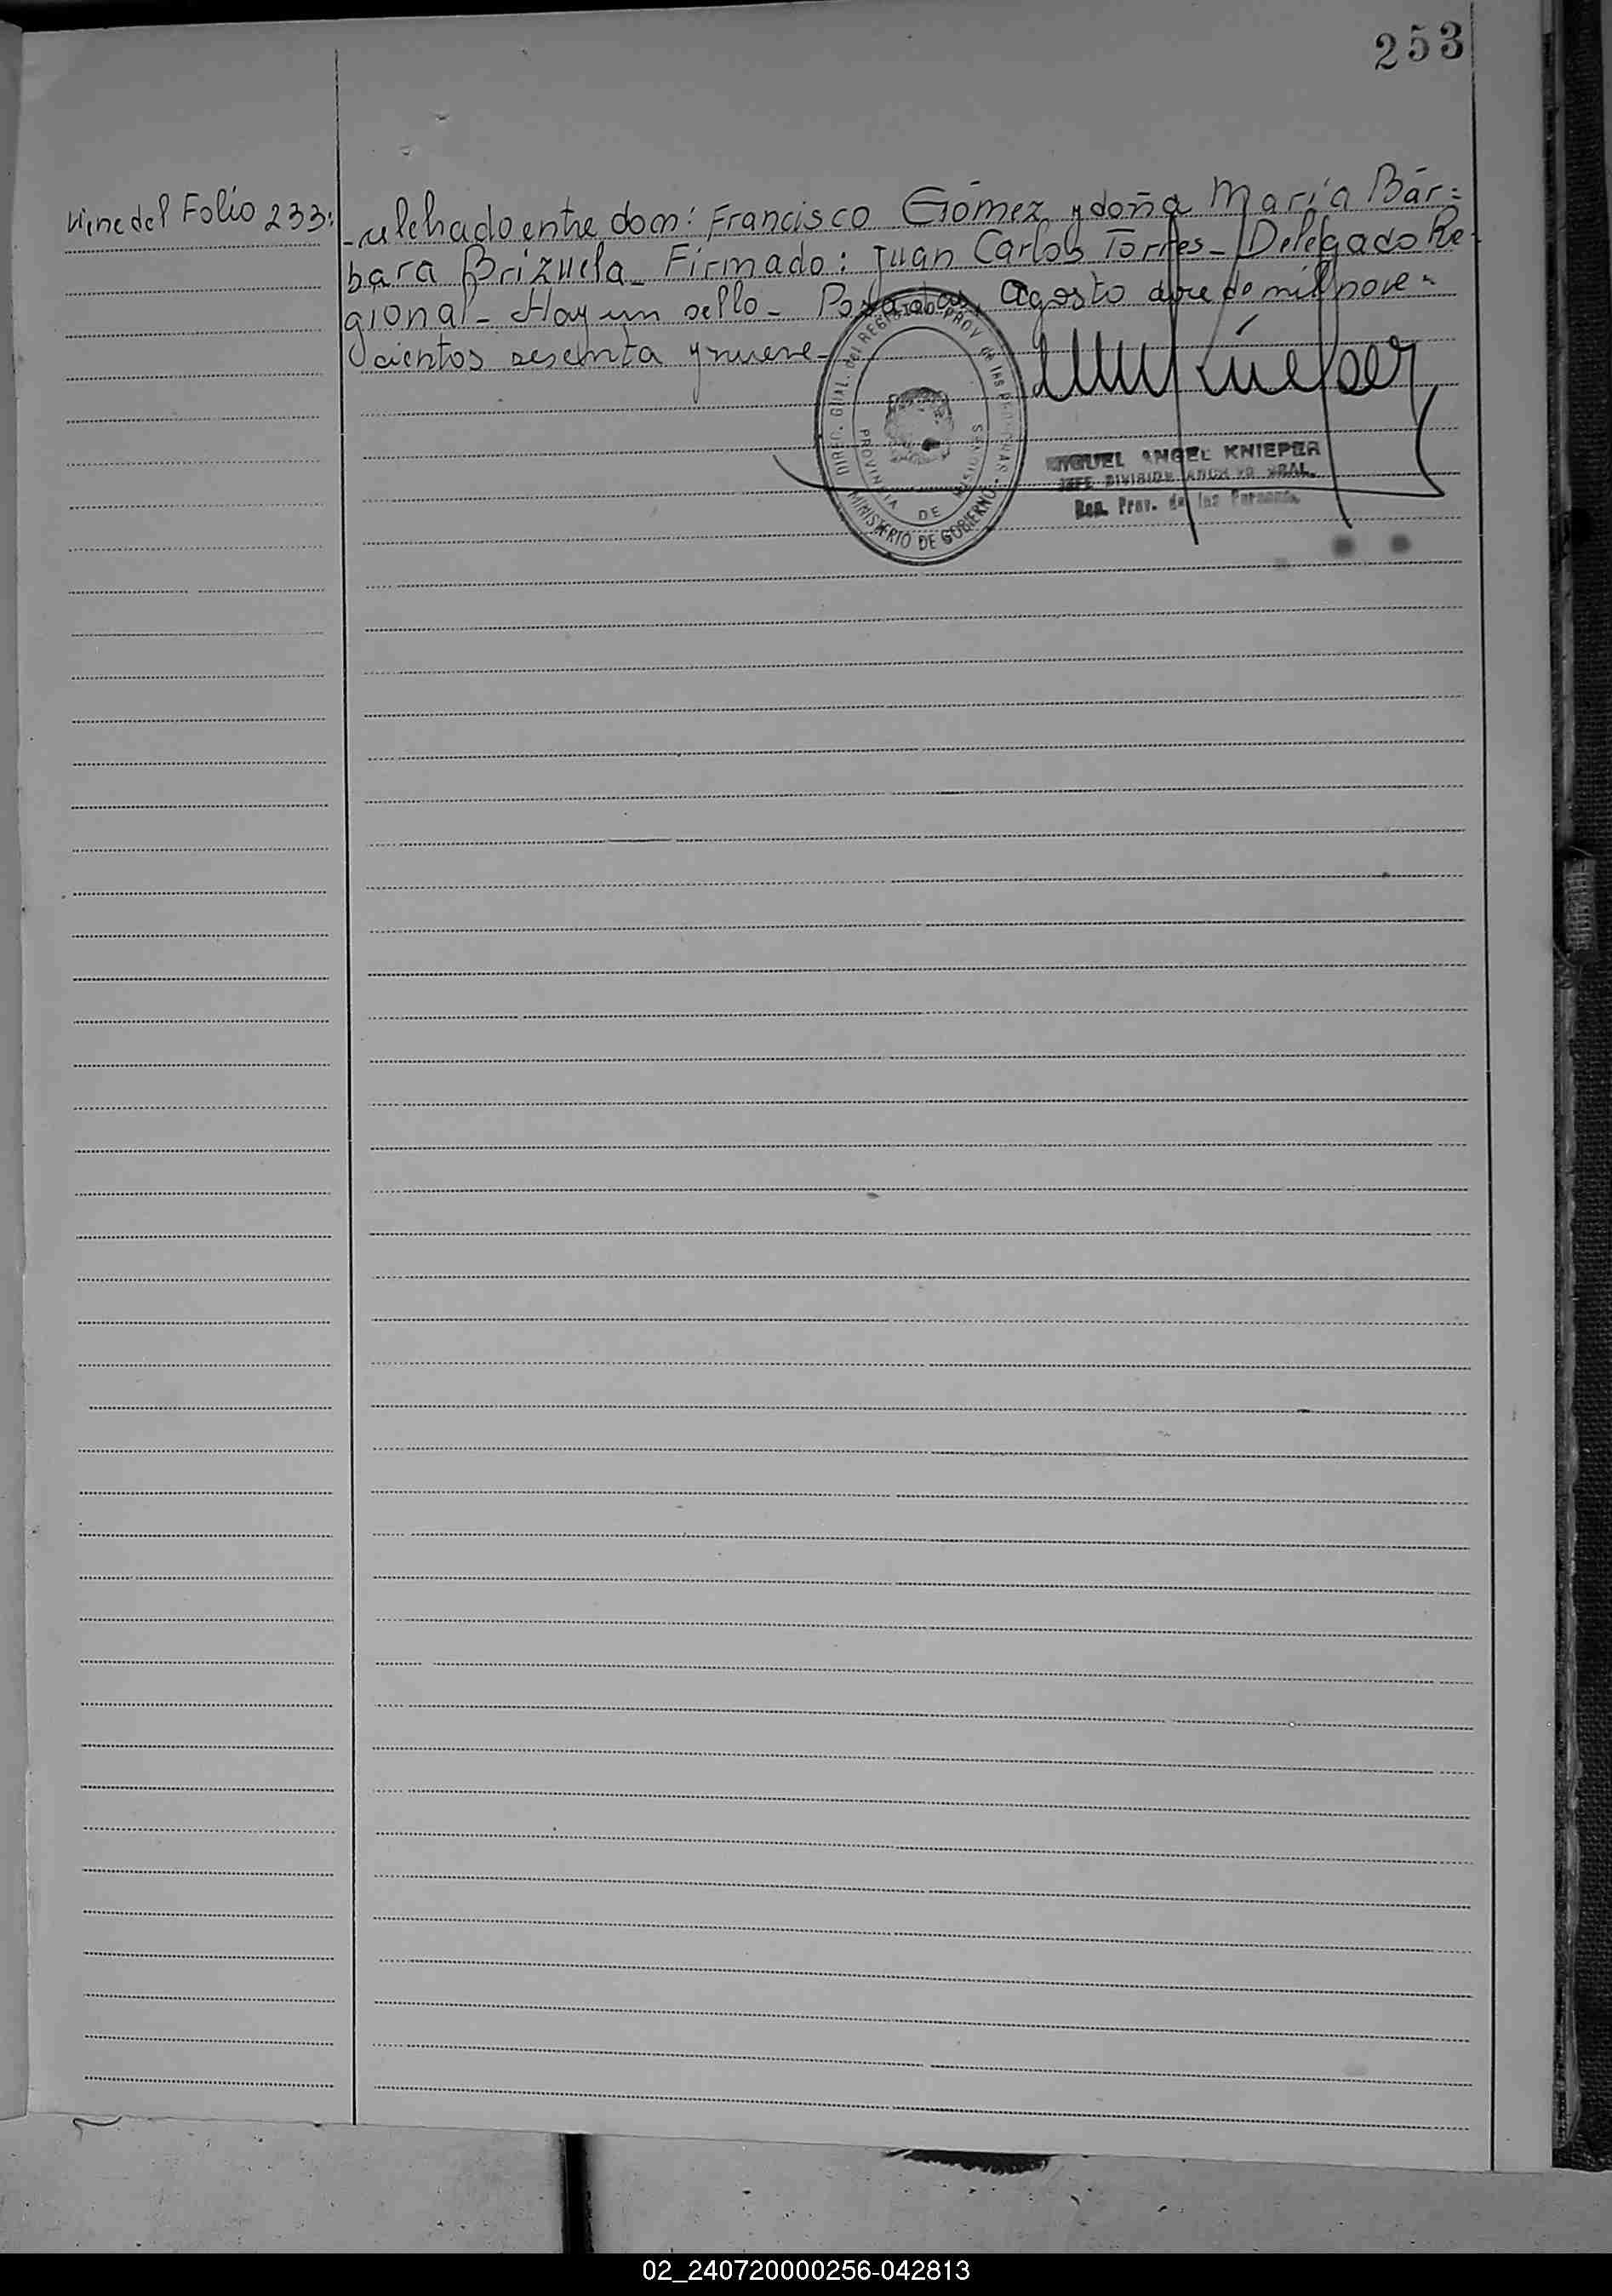 253
Viene del Folio 233:
-celebrado entre don: Francisco Gómez y doña María Bár-
bara Brizuela_ Firmado: Juan Carlos Torres_ Delegado Re-
gional_ Hay un sello_ Posadas, Agosto doce de mil nove-
cientos sesenta y nueve_
DIREC. GRAL. del REGISTRO PROV. de las PERSONAS
PROVINCIA DE MISIONES
MINISTERIO DE GOBIERNO
MIGUEL ANGEL KNIEPER
JEFE DIVISION ARCHIVO GRAL.
Reg. Prov. de las Personas
02_240720000256-042813